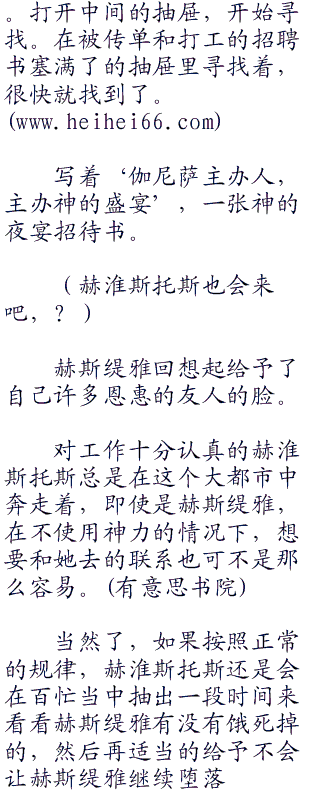 。打开中间的抽屉，开始寻
找。在被传单和打工的招聘
书塞满了的抽屉里寻找着，
很快就找到了。
(www.heihei66.com)
写着‘伽尼萨主办人，
主办神的盛宴’，一张神的
夜宴招待书。
（赫淮斯托斯也会来
吧，？）
赫斯缇雅回想起给予了
自己许多恩惠的友人的脸。
对工作十分认真的赫淮
斯托斯总是在这个大都市中
奔走着，即使是赫斯缇雅，
在不使用神力的情况下，想
要和她去的联系也可不是那
么容易。(有意思书院)
当然了，如果按照正常
的规律，赫淮斯托斯还是会
在百忙当中抽出一段时间来
看看赫斯缇雅有没有饿死掉
的，然后再适当的给予不会
让赫斯缇雅继续堕落